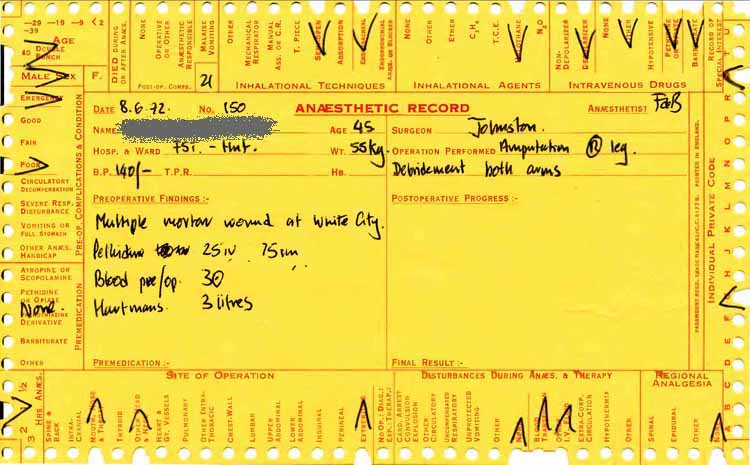 —29 —19 —9 < 2
—39
AGE
40 DOUBLE PUNCH
MALE SEX F.
DIED DURING OR AFTER ANÆS.
NONE
OPERATIVE OR OTHER
ANÆSTHETIC RESPONSIBLE
MALAISE VOMITING
OTHER
POST-OP. COMPS.
21
MECHANICAL RESPIRATOR
MANUAL ASS. OR C.R.
T. PIECE
ABSORPTION
INHALATIONAL TECHNIQUES
NONE
OTHER
ETHER
C₃H₆
T.C.E.
N₂O
INHALATIONAL AGENTS
NON-DEPOLARIZER
DEPOLARIZER
NONE
OTHER
HYPOTENSIVE
INTRAVENOUS DRUGS
RECORD OF SPECIAL INTEREST
EMERGENCY
GOOD
FAIR
POOR
CIRCULATORY DECOMPENSATION
SEVERE RESP. DISTURBANCE
VOMITING OR FULL STOMACH
OTHER ANÆS. HANDICAP
PRE-OP. COMPLICATIONS & CONDITION
ATROPINE OR SCOPOLAMINE
PETHIDINE OR OPIATE
None.
DERIVATIVE
BARBITURATE
OTHER
PREMEDICATION
DATE 8.6.72. No. 150 ANÆSTHETIC RECORD ANÆSTHETIST
NAME AGE 45 SURGEON Johnston.
HOSP. & WARD WT. 55kg. OPERATION PERFORMED Amputation (R) leg.
B.P. 140/- T.P.R. HB. Debridement both arms
PREOPERATIVE FINDINGS :- POSTOPERATIVE PROGRESS :-
Multiple mortar wound at White City.
25 iv 75 im
Blood pre/op. 30
Hartmans 3 litres
PREMEDICATION :- FINAL RESULT :-
PRINTED IN ENGLAND.
INDIVIDUAL PRIVATE CODE
A B C D E F G H J K L M N O P
HRS. ANÆS.
3 2 1 ½
SITE OF OPERATION
SPINE & BACK
INTRA-CRANIAL
THYROID
HEART & GT. VESSELS
PULMONARY
OTHER INTRA-THORACIC
CHEST-WALL
LUMBAR
UPPER ABDOMINAL
LOWER ABDOMINAL
INGUINAL
PERINEAL
DISTURBANCES DURING ANÆS. & THERAPY
NO OP.: DIAG.: ESP.: THERAP.:
CARD. ARREST CONVULSION EXPLOSION
OTHER CIRCULATORY
UNCOMPENSATED RESPIRATORY
UNPROTECTED VOMITING
OTHER
EXTRA-CORP. CIRCULATION
HYPOTHERMIA
REGIONAL ANALGESIA
SPINAL
EPIDURAL
OTHER